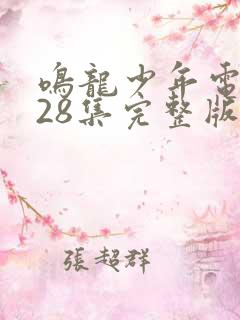 鳴龍少年電
28集完整版
張超群